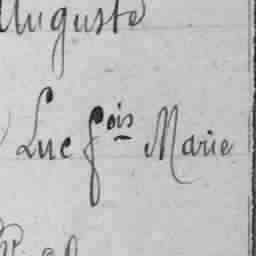 Auguste
Luc fois Marie